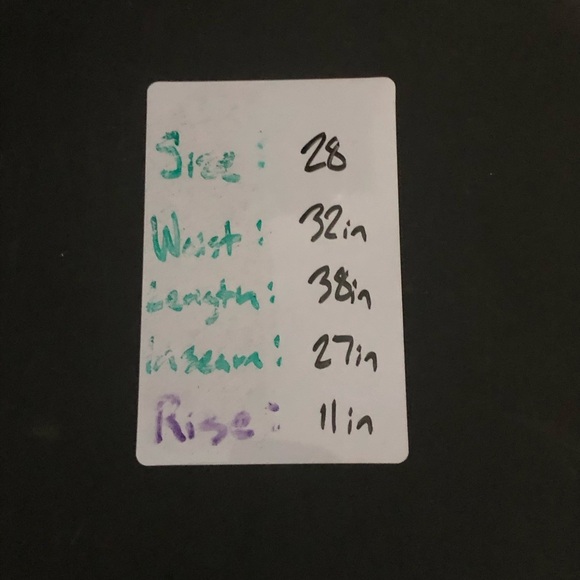 Size: 28
Waist: 32in
Length: 38in
Inseam: 27in
Rise: 11in